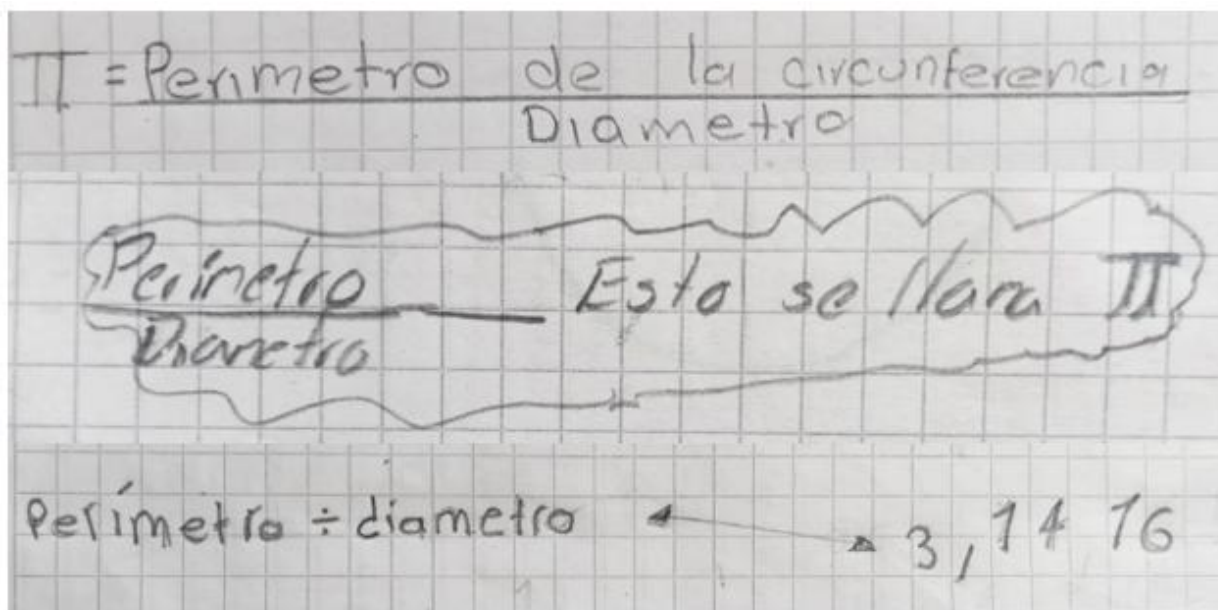 π = Perimetro de la circunferencia
Diametro
Perímetro Esto se llama π
Diametro
Perímetro ÷ diametro 3,1416